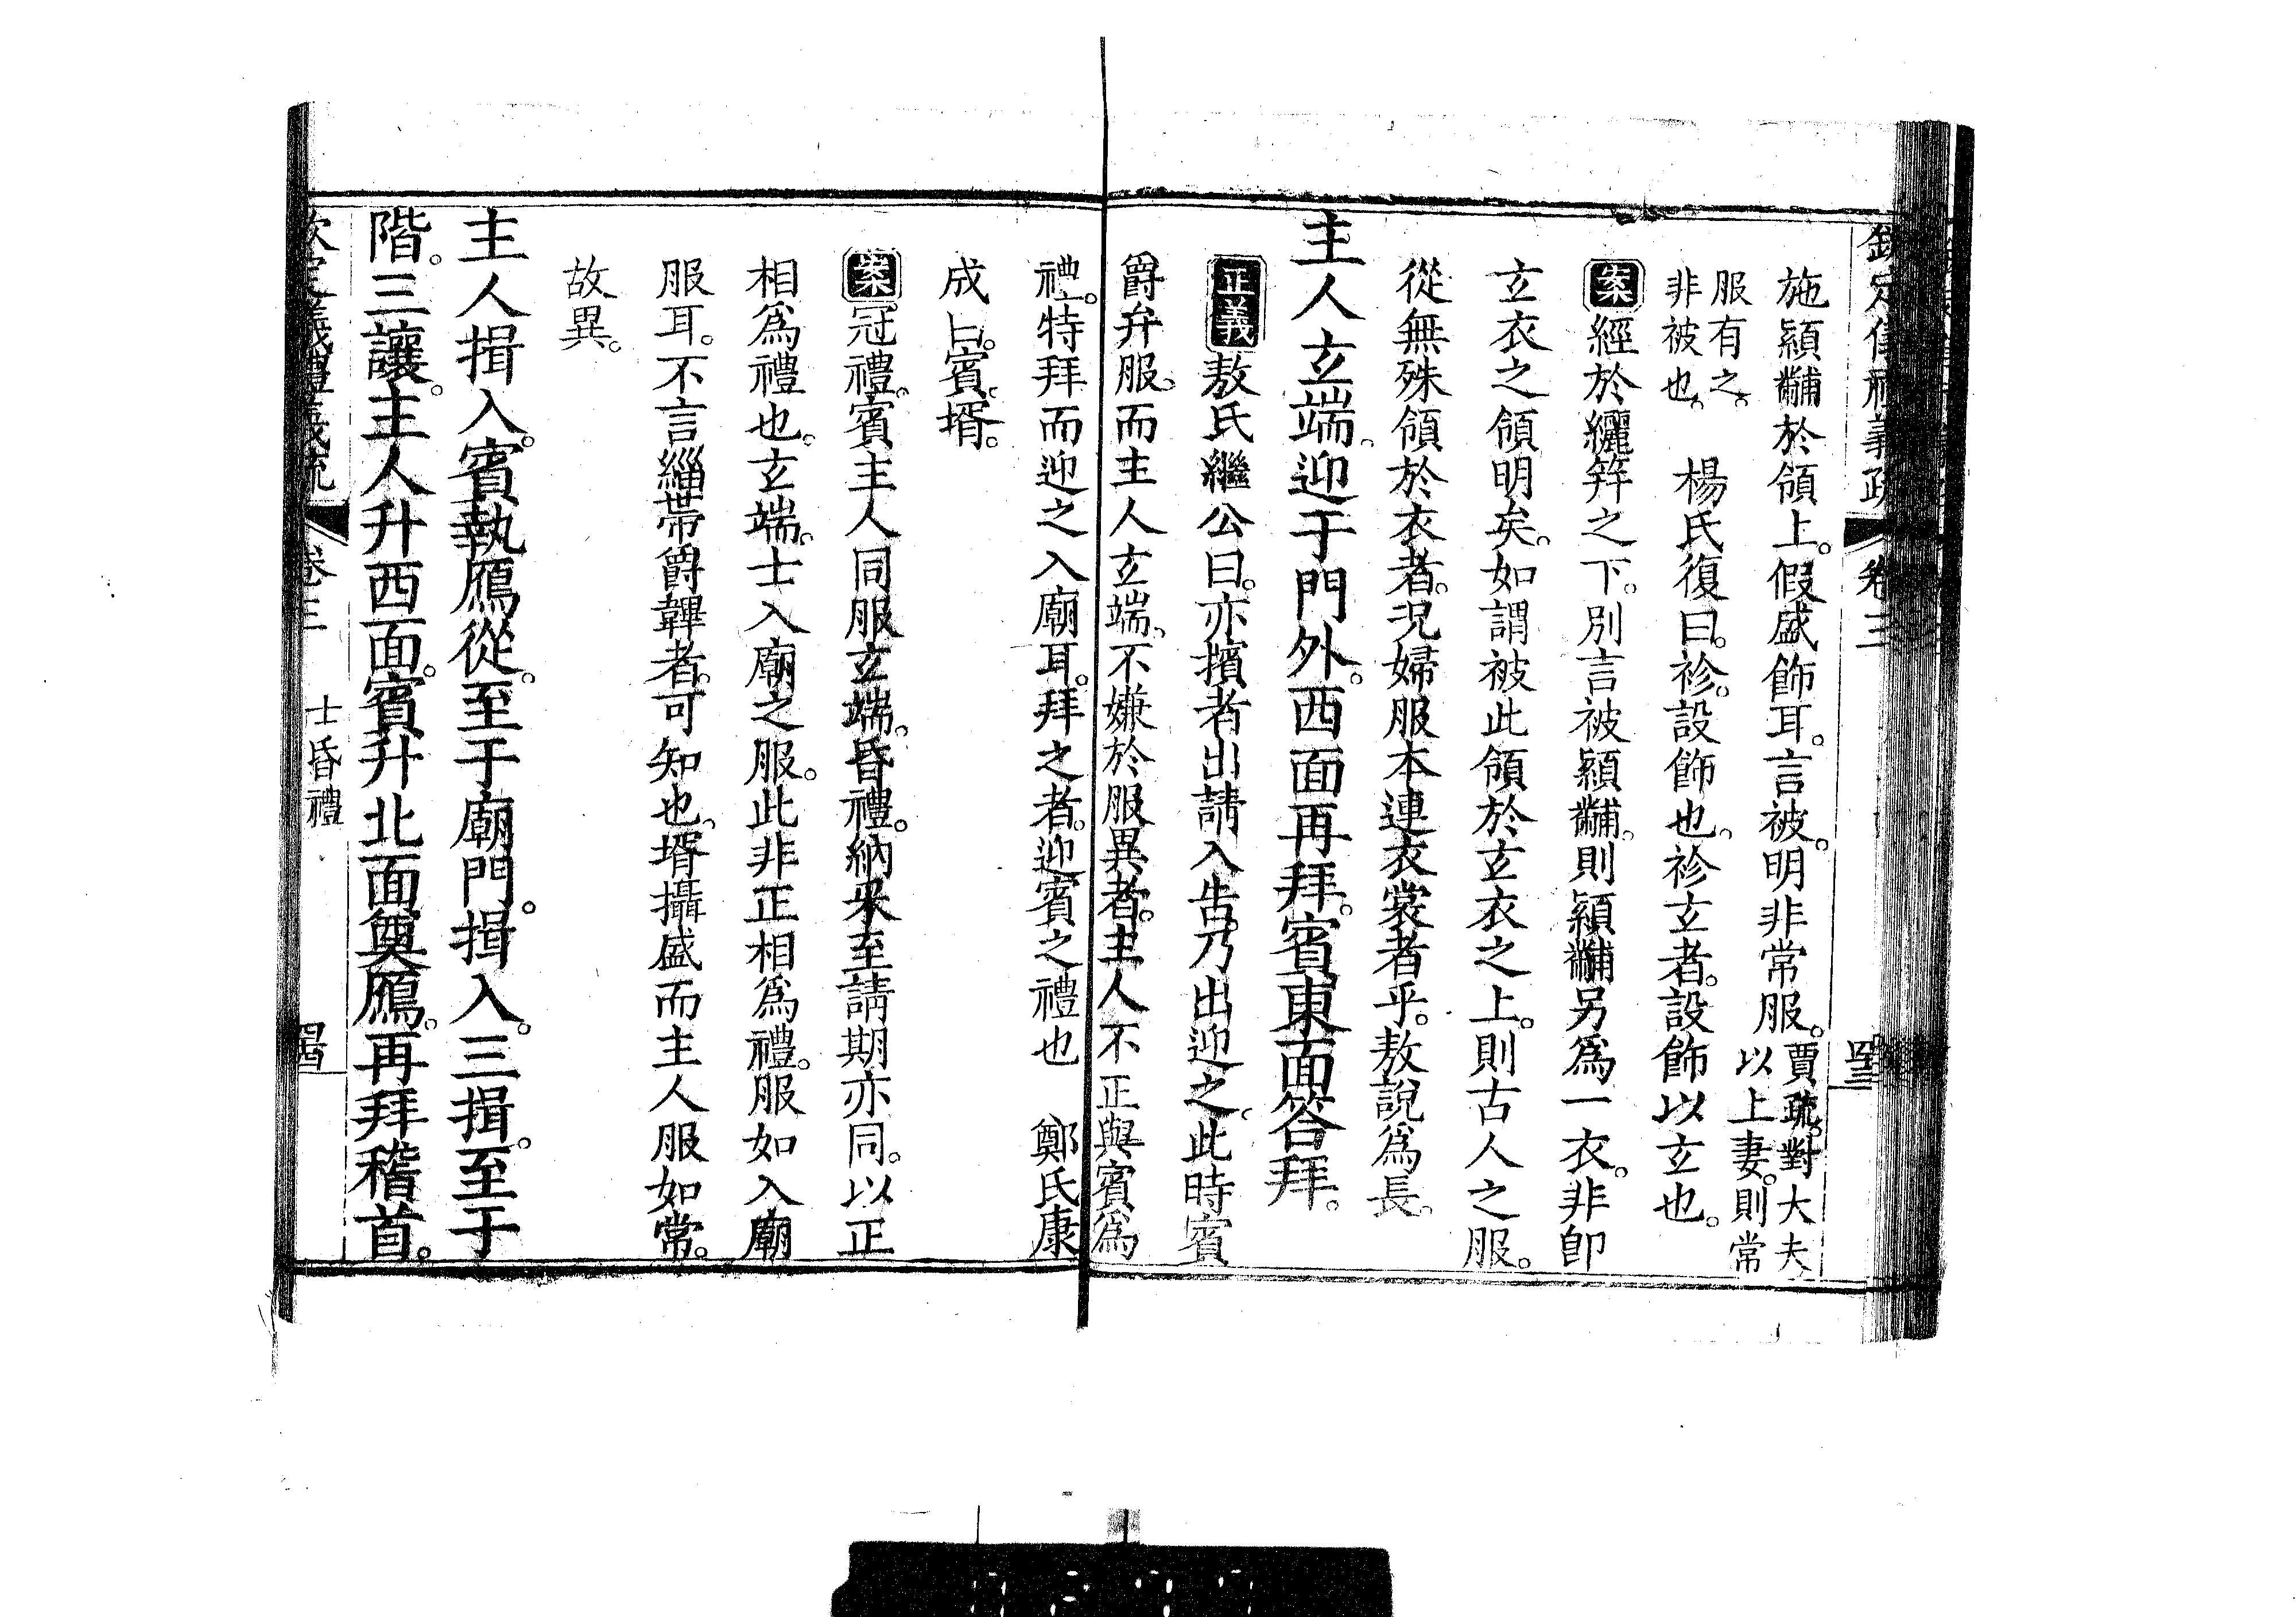 施潁黼於領上。假盛飾耳。言被。明非常服。賈疏。對大夫以上妻。則常
服有之。非被也。　楊氏復曰。袗。設飾也。袗玄者。設飾以玄也。
案經於纚笄之下。別言被潁黼。則潁黼另爲一衣。非卽
玄衣之領明矣。如謂被此領於玄衣之上。則古人之服。
從無殊領於衣者。況婦服本連衣裳者乎。敖說爲長。
主人玄端。迎于門外。西面再拜。賓東面答拜。
正義敖氏繼公曰。亦擯者出請入告。乃出迎之。此時賓
爵弁服。而主人玄端。不嫌於服異者。主人不正與賓爲
禮。特拜而迎之入廟耳。拜之者。迎賓之禮也　鄭氏康
成曰。賓。壻。
案。冠禮。賓主人同服玄端。昏禮。納采至請期亦同。以正
相爲禮也。玄端。士入廟之服。此非正相爲禮。服如入廟
服耳。不言緇帶爵韠者。可知也。壻攝盛而主人服如常。
故異。
主人揖入。賓執鴈從。至于廟門。揖入。三揖。至于
階。三讓。主人升西面。賓升北面奠鴈。再拜稽首。
欽定儀禮義疏　卷三　士昏禮　四